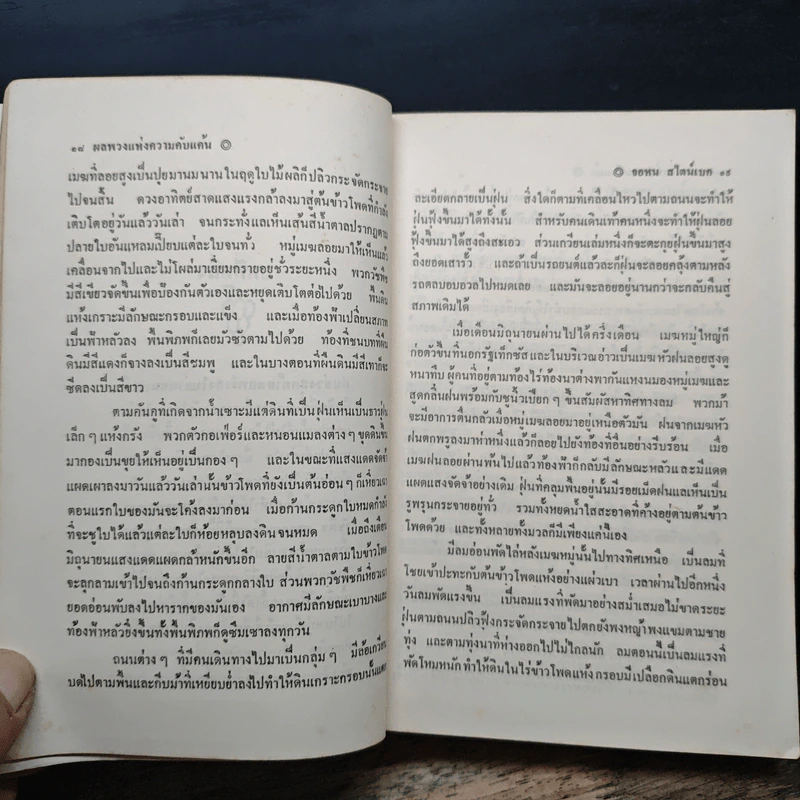 ๑๘ ผลพวงแห่งความคับแค้น ◎
เมฆที่ลอยสูงเป็นปุยมานมนานในฤดูใบไม้ผลิก็ปลิวกระจัดกระจาย
ไปจนสิ้น ดวงอาทิตย์สาดแสงแรงกล้าลงมาสู่ต้นข้าวโพดที่กำลัง
เติบโตอยู่วันแล้ววันเล่า จนกระทั่งแลเห็นเส้นสีน้ำตาลปรากฏตาม
ปลายใบอันแหลมเปี๊ยบแต่ละใบจนทั่ว หมู่เมฆลอยมาให้เห็นแล้ว
เคลื่อนจากไปและไม่โผล่มาเยี่ยมกรายอยู่ชั่วระยะหนึ่ง พวกวัชพืช
มีสีเขียวจัดขึ้นเพื่อป้องกันตัวเองและหยุดเติบโตต่อไปด้วย พื้นดิน
แห้งเกราะมีลักษณะกรอบและแข็ง และเมื่อท้องฟ้าเปลี่ยนสภาพ
เป็นฟ้าหลัวลง พื้นพิภพก็เลยมัวซัวตามไปด้วย ท้องที่ชนบทที่ผืน
ดินมีสีแดงก็จางลงเป็นสีชมพู และในบางตอนที่ผืนดินมีสีเทาก็จะ
ซีดลงเป็นสีขาว
ตามคันคูที่เกิดจากน้ำเซาะมีแต่ดินที่เป็นฝุ่นเห็นเป็นธารฝุ่น
เล็ก ๆ แห้งกรัง พวกตัวกอเฟ่อร์และหนอนแมลงต่าง ๆ ขุดดินขึ้น
มากองเป็นขุยให้เห็นอยู่เป็นกอง ๆ และในขณะที่แสงแดดจัดจ้า
แผดเผาลงมาวันแล้ววันเล่านั้นข้าวโพดที่ยังเป็นต้นอ่อน ๆ ก็เหี่ยวเฉา
ตอนแรกใบของมันจะโค้งลงมาก่อน เมื่อก้านกระดูกใบหมดกำลัง
ที่จะชูใบได้แล้วแต่ละใบก็ห้อยหลุบลงดินจนหมด เมื่อถึงเดือน
มิถุนายนแสงแดดแผดกล้าหนักขึ้นอีก ลายสีน้ำตาลตามใบข้าวโพด
จะลุกลามเข้าไปจนถึงก้านกระดูกกลางใบ ส่วนพวกวัชพืชก็เหี่ยวเฉา
ยอดอ่อนพับลงไปหารากของมันเอง อากาศมีลักษณะเบาบางและ
ท้องฟ้าหลัวยิ่งขึ้นทั้งพื้นพิภพก็ดูซึมเซาลงทุกวัน
ถนนต่าง ๆ ที่มีคนเดินทางไปมาเป็นกลุ่ม ๆ มีล้อเกวียน
บดไปตามพื้นและกีบม้าที่เหยียบย่ำลงไปทำให้ดินเกราะกรอบนั้นแตก
◎ จอห์น สไตน์เบค ๑๙
ละเอียดกลายเป็นฝุ่น สิ่งใดก็ตามที่เคลื่อนไหวไปตามถนนจะทำให้
ฝุ่นฟุ้งขึ้นมาได้ทั้งนั้น สำหรับคนเดินเท้าคนหนึ่งจะทำให้ฝุ่นลอย
ฟุ้งขึ้นมาได้สูงถึงสะเอว ส่วนเกวียนเล่มหนึ่งก็จะตะกุยฝุ่นขึ้นมาสูง
ถึงยอดเสารั้ว และถ้าเป็นรถยนต์แล้วละก็ฝุ่นจะลอยคลุ้งตามหลัง
รถตลบอบอวลไปหมดเลย และมันจะลอยอยู่นานกว่าจะกลับคืนสู่
สภาพเดิมได้
เมื่อเดือนมิถุนายนผ่านไปได้ครึ่งเดือน เมฆหมู่ใหญ่ก็
ก่อตัวขึ้นที่นอกรัฐเท็กซัสและในบริเวณอ่าวเป็นเมฆหัวฝนลอยสูงดู
หนาทึบ ผู้คนที่อยู่ตามท้องไร่ท้องนาต่างพากันแหงนมองหมู่เมฆและ
สูดกลิ่นฝนพร้อมกับชูนิ้วเปียก ๆ ขึ้นสัมผัสหาทิศทางลม พวกม้า
จะมีอาการตื่นกลัวเมื่อหมู่เมฆลอยมาอยู่เหนือตัวมัน ฝนจากเมฆหัว
ฝนตกพรูลงมาห่าหนึ่งแล้วก็ลอยไปยังท้องที่อื่นอย่างรีบร้อน เมื่อ
เมฆฝนลอยผ่านพ้นไปแล้วท้องฟ้าก็กลับมีลักษณะหลัวและมีแดด
แผดแสงจัดจ้าอย่างเดิม ฝุ่นที่คลุมพื้นอยู่นั้นมีรอยเม็ดฝนแลเห็นเป็น
รูพรุนกระจายอยู่ทั่ว รวมทั้งหยดน้ำใสสะอาดที่ค้างอยู่ตามต้นข้าว
โพดด้วย และทั้งหลายทั้งมวลก็มีเพียงแค่นี้เอง
มีลมอ่อนพัดไล่หลังเมฆหมู่นั้นไปทางทิศเหนือ เป็นลมที่
โชยเข้าปะทะกับต้นข้าวโพดแห้งอย่างแผ่วเบา เวลาผ่านไปอีกหนึ่ง
วันลมพัดแรงขึ้น เป็นลมแรงที่พัดมาอย่างสม่ำเสมอไม่ขาดระยะ
ฝุ่นตามถนนปลิวฟุ้งกระจัดกระจายไปตกยังพงหญ้าพงแขมตามชาย
ทุ่ง และตามทุ่งนาที่ห่างออกไปไม่ไกลนัก ลมตอนนี้เป็นลมแรงที่
พัดโหมหนัก ทำให้ดินในไร่ข้าวโพดแห้งกรอบมีเปลือกดินแตกร่อน